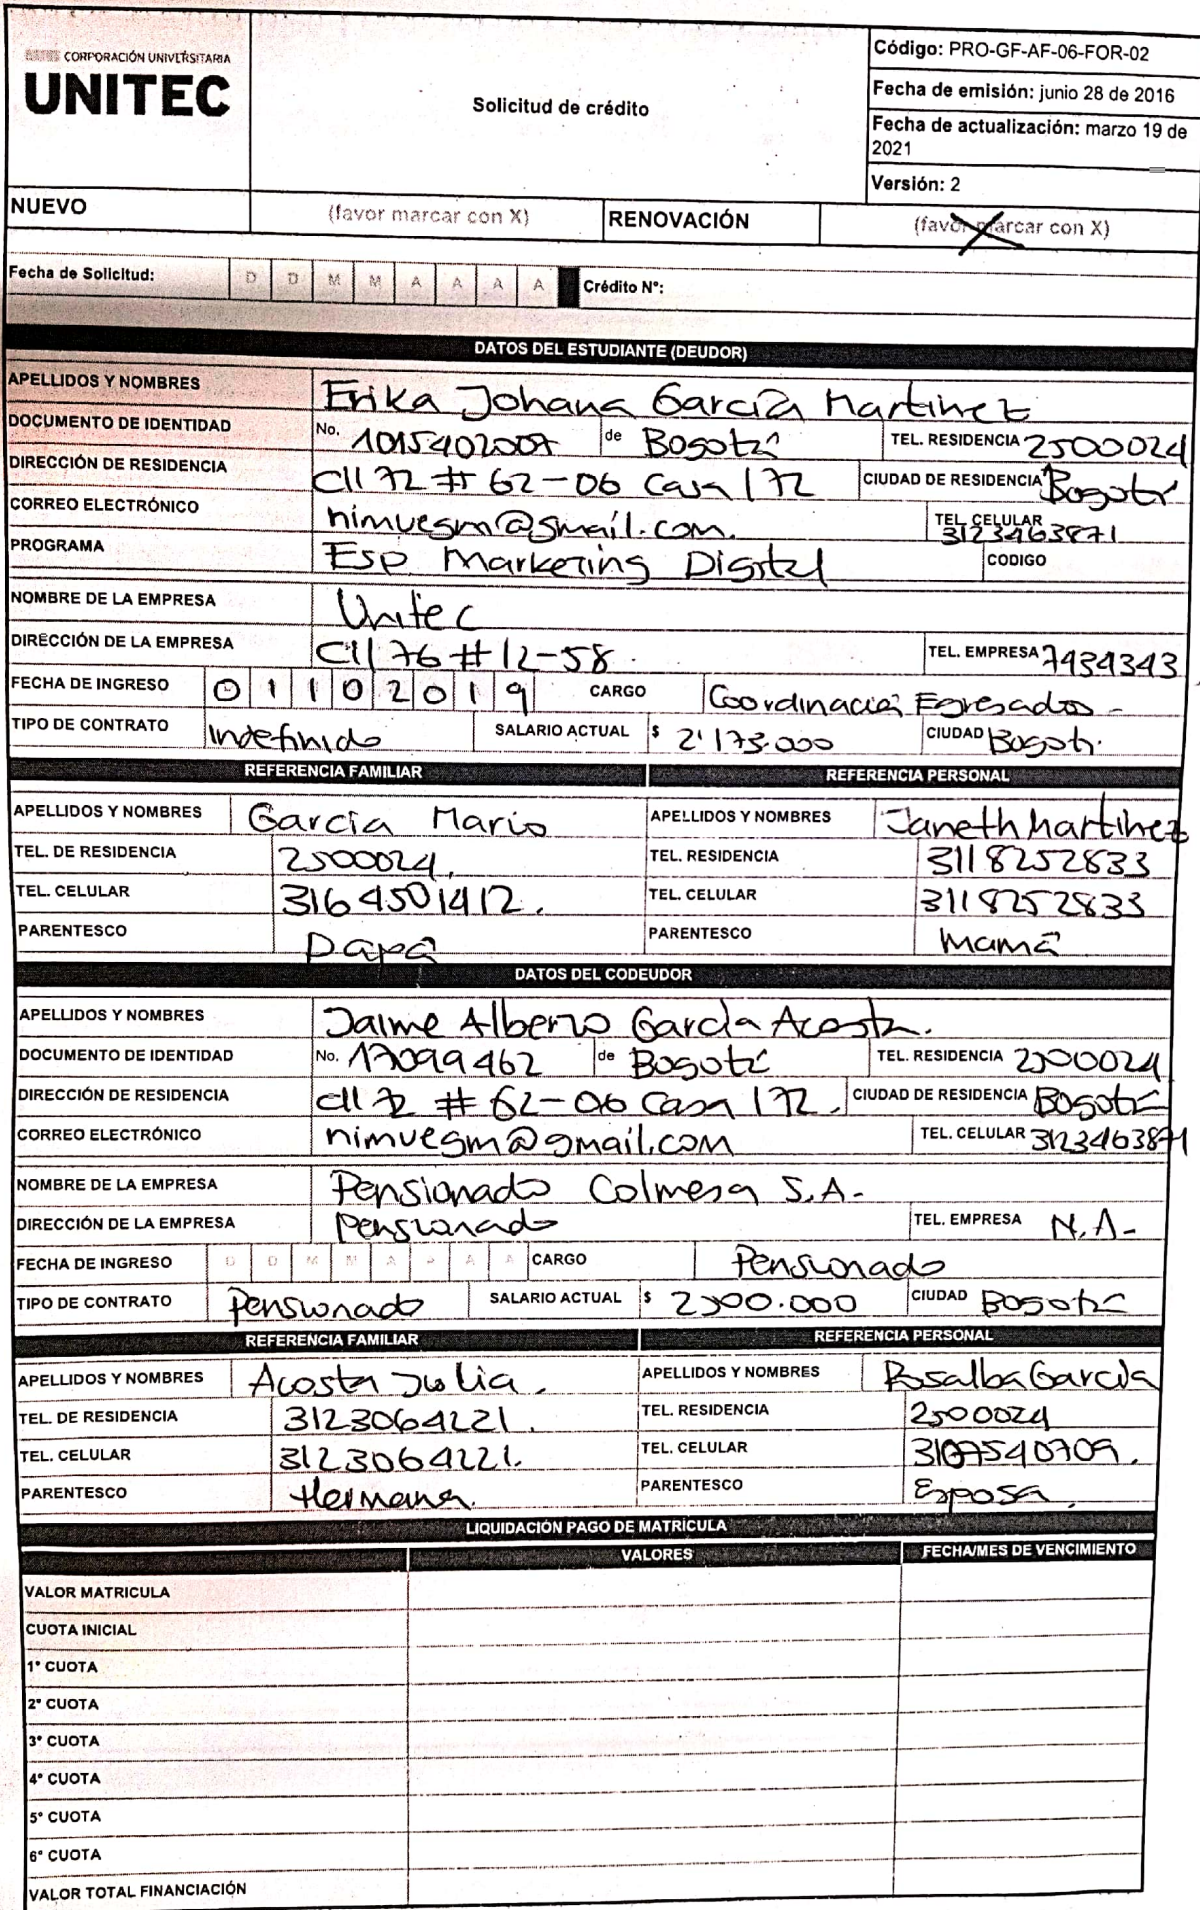 CORPORACIÓN UNIVERSITARIA
UNITEC
Solicitud de crédito
Código: PRO-GF-AF-06-FOR-02
Fecha de emisión: junio 28 de 2016
Fecha de actualización: marzo 19 de
2021
Versión: 2
NUEVO (favor marcar con X) RENOVACIÓN (favor marcar con X) X
Fecha de Solicitud: D D M M A A A A Crédito N°:
DATOS DEL ESTUDIANTE (DEUDOR)
APELLIDOS Y NOMBRES Erika Johana García Martinez
DOCUMENTO DE IDENTIDAD No. 1015402007 de Bogotá TEL. RESIDENCIA 2500024
DIRECCIÓN DE RESIDENCIA Cll 72 # 62-06 Casa 172 CIUDAD DE RESIDENCIA Bogotá
CORREO ELECTRÓNICO nimuegm@gmail.com. TEL. CELULAR 3123463871
PROGRAMA Esp Marketing Digital CODIGO
NOMBRE DE LA EMPRESA Unitec
DIRECCIÓN DE LA EMPRESA Cll 76 # 12-58. TEL. EMPRESA 7434343
FECHA DE INGRESO 0 1 1 0 2 0 1 9 CARGO Coordinación Egresados -
TIPO DE CONTRATO Indefinido SALARIO ACTUAL $ 2'173.000 CIUDAD Bogotá.
REFERENCIA FAMILIAR REFERENCIA PERSONAL
APELLIDOS Y NOMBRES García Mario APELLIDOS Y NOMBRES Janeth Martinez
TEL. DE RESIDENCIA 2500024. TEL. RESIDENCIA 3118252833
TEL. CELULAR 3164501412. TEL. CELULAR 3118252833
PARENTESCO Papá PARENTESCO Mamá
DATOS DEL CODEUDOR
APELLIDOS Y NOMBRES Jaime Alberto García Acosta.
DOCUMENTO DE IDENTIDAD No. 17099462 de Bogotá TEL. RESIDENCIA 2500024
DIRECCIÓN DE RESIDENCIA Cll 72 # 62-06 Casa 172. CIUDAD DE RESIDENCIA Bogotá
CORREO ELECTRÓNICO nimuegm@gmail.com TEL. CELULAR 3123463871
NOMBRE DE LA EMPRESA Pensionado Colmesa S.A.
DIRECCIÓN DE LA EMPRESA Pensionado TEL. EMPRESA N.A-
FECHA DE INGRESO D D M M A A A A CARGO Pensionado
TIPO DE CONTRATO Pensionado SALARIO ACTUAL $ 2500.000 CIUDAD Bogotá
REFERENCIA FAMILIAR REFERENCIA PERSONAL
APELLIDOS Y NOMBRES Acosta Julia. APELLIDOS Y NOMBRES Rosalba García
TEL. DE RESIDENCIA 3123064221. TEL. RESIDENCIA 2500024
TEL. CELULAR 3123064221. TEL. CELULAR 3107540709.
PARENTESCO Hermana. PARENTESCO Esposa.
LIQUIDACIÓN PAGO DE MATRÍCULA
VALORES FECHA/MES DE VENCIMIENTO
VALOR MATRICULA
CUOTA INICIAL
1° CUOTA
2° CUOTA
3° CUOTA
4° CUOTA
5° CUOTA
6° CUOTA
VALOR TOTAL FINANCIACIÓN